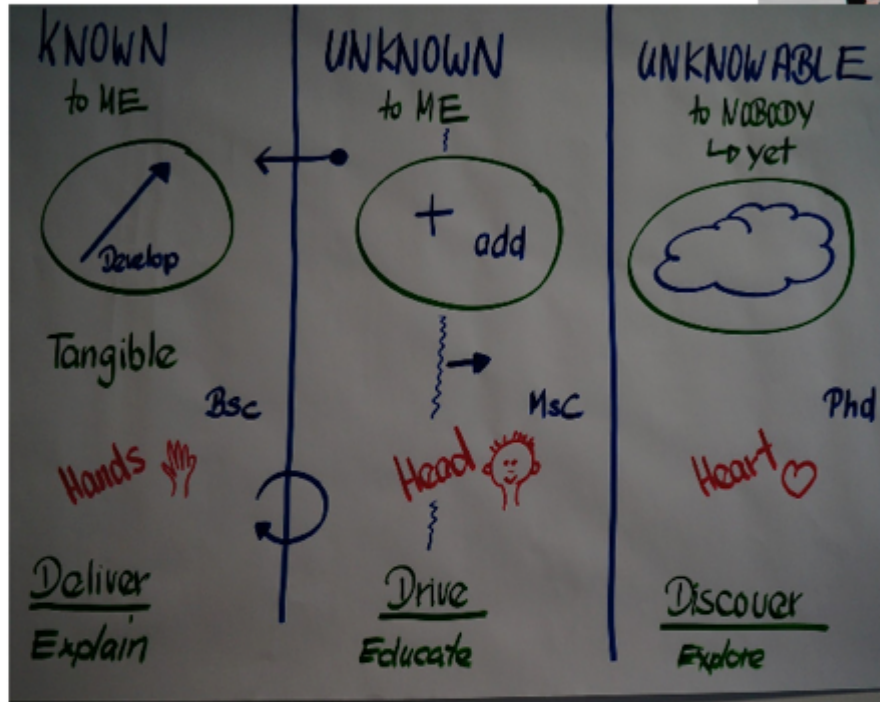 KNOWN
to ME
Develop
Tangible
BSc
Hands
Deliver
Explain
UNKNOWN
to ME
+ add
MsC
Head
Drive
Educate
UNKNOWABLE
to NOBODY
↳ yet
Phd
Heart
Discover
Explore